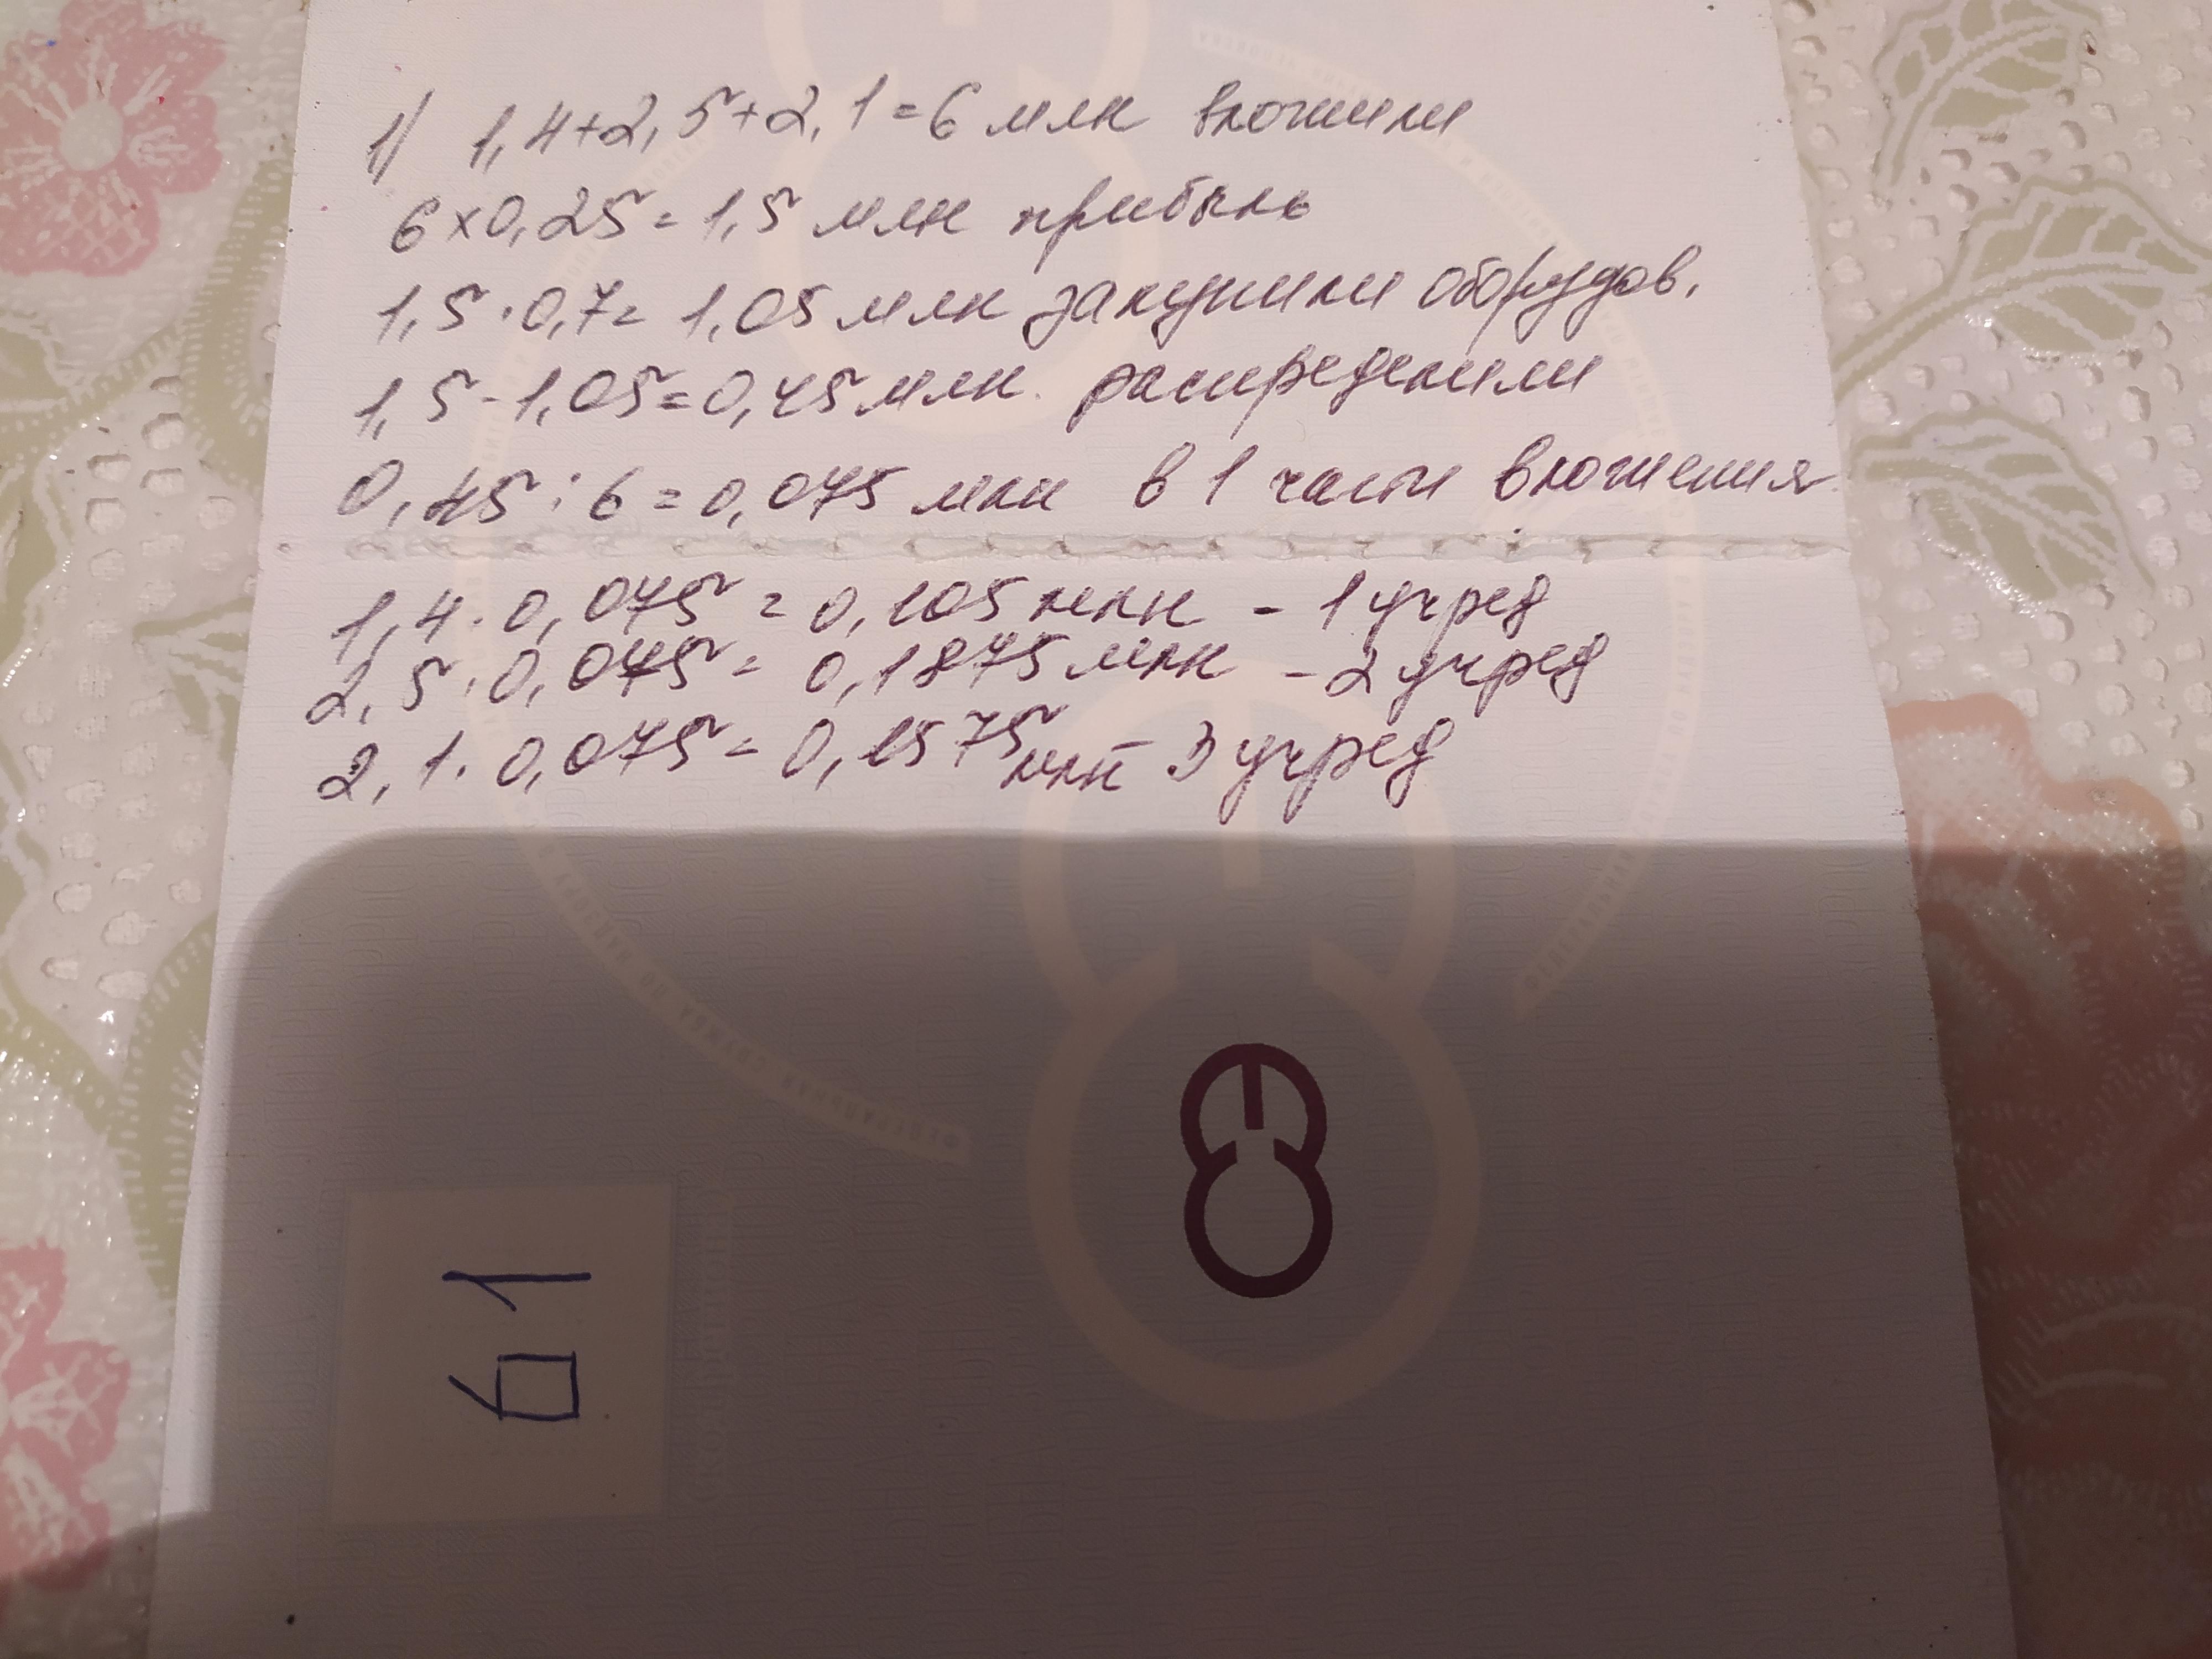 1) 1,4+2,5+2,1=6 млн вложили
6×0,25=1,5 млн прибыль
1,5·0,7=1,05 млн закупили оборудов.
1,5-1,05=0,45 млн. распределили
0,45:6=0,075 млн в 1 части вложения
1,4·0,075=0,105 млн - 1 учред
2,5·0,075=0,1875 млн - 2 учред
2,1·0,075=0,1575 млн - 3 учред
61